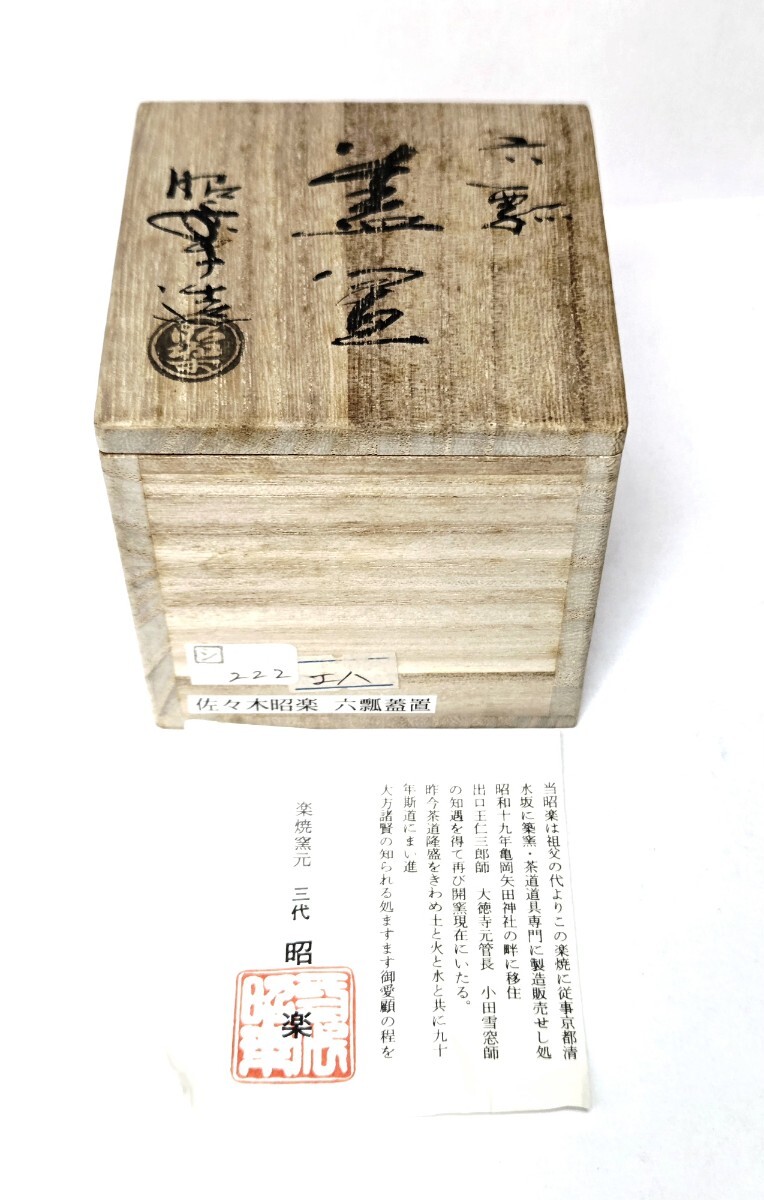 六瓢
蓋置
昭楽造
シ
222
エハ
佐々木昭楽 六瓢蓋置
当昭楽は祖父の代よりこの楽焼に従事京都清
水坂に築窯・茶道道具専門に製造販売せし処
昭和十九年亀岡矢田神社の畔に移住
出口王仁三郎師 大徳寺元管長 小田雪窓師
の知遇を得て再び開窯現在にいたる。
昨今茶道隆盛をきわめ土と火と水と共に九十
年斯道にまい進
大方諸賢の知られる処ますます御愛顧の程を
楽焼窯元 三代 昭楽